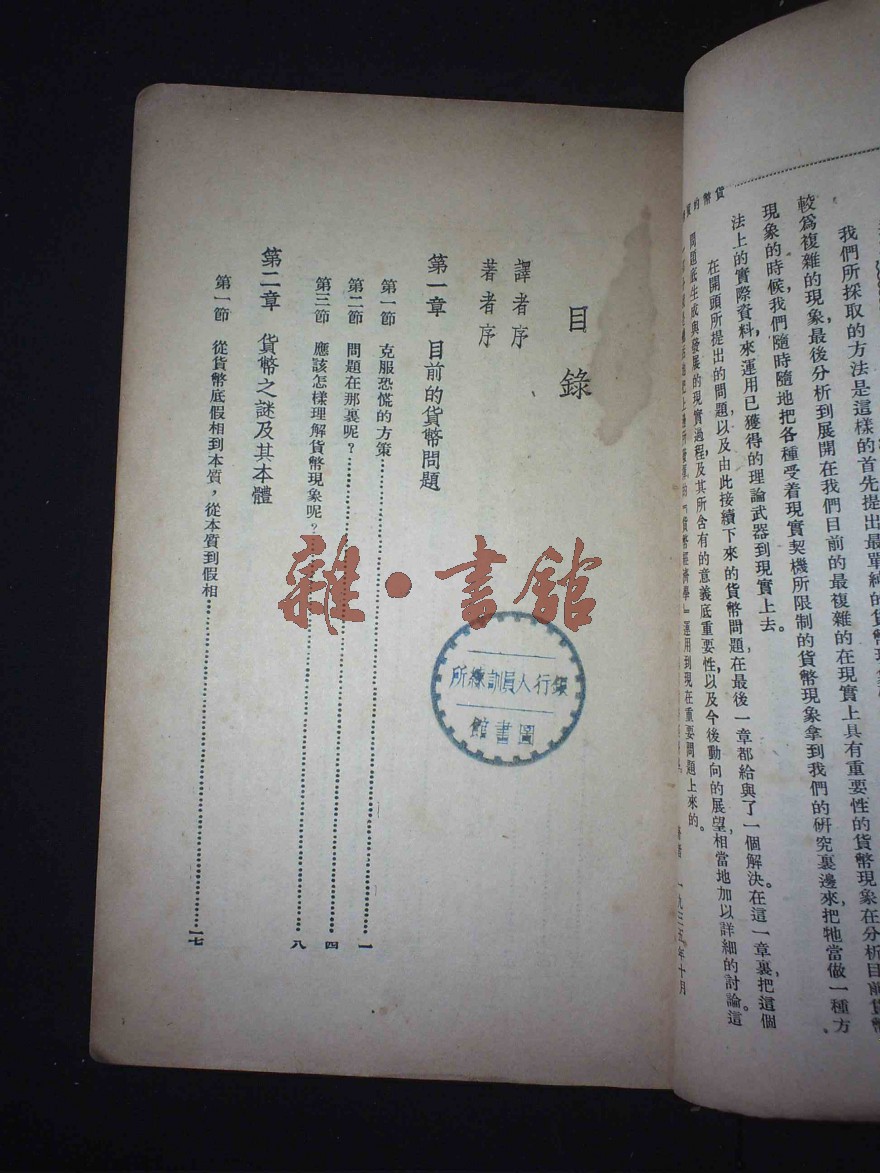 我們所採取的方法是這樣的首先提出最單純的貨幣現象
較爲複雜的現象最後分析到展開在我們目前的最複雜的在現實上具有重要性的貨幣現象在分析目前貨幣
現象的時候，我們隨時隨地把各種受着現實契機所限制的貨幣現象拿到我們的研究裏邊來，把牠當做一種方
法上的實際資料，來運用已獲得的理論武器到現實上去。
在開頭所提出的問題，以及由此接續下來的貨幣問題，在最後一章都給與了一個解決。在這一章裏，把這個
問題底生成與發展的現實過程，及其所含有的意義底重要性，以及今後動向的展望，相當地加以詳細的討論。這
『貨幣經濟學』運用到現在重要問題上來的。
著者 一九三五年十月
目錄
譯者序
著者序
第一章 目前的貨幣問題
第一節 克服恐慌的方策……一
第二節 問題在那裏呢？……四
第三節 應該怎樣理解貨幣現象呢？……八
第二章 貨幣之謎及其本體
第一節 從貨幣底假相到本質，從本質到假相……一七
雜·書館
銀行人員訓練所
圖書館